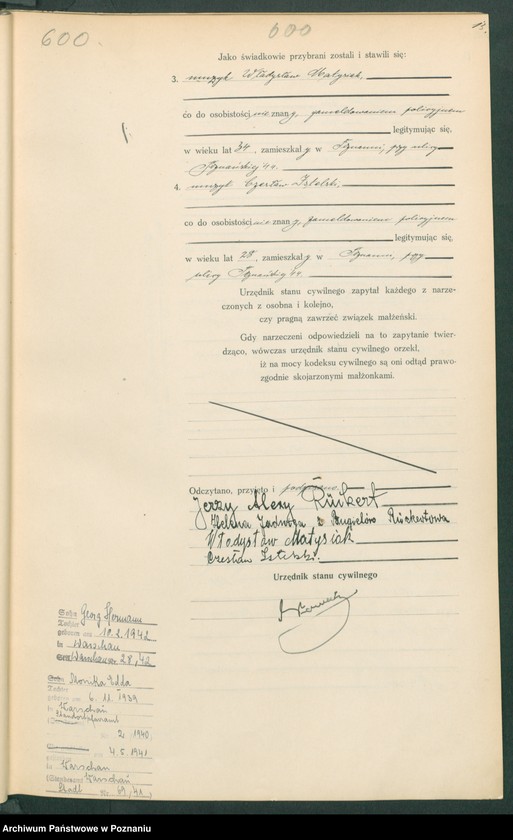 600.
600
Jako świadkowie przybrani zostali i stawili się:
3. muzyk Władysław Matysiak,
co do osobistości nie znany, zameldowaniem policyjnem
legitymując się,
w wieku lat 34, zamieszkały w Poznaniu, przy ulicy
Poznańskiej
4. muzyk Czesław
co do osobistości nie znany, zameldowaniem policyjnem
legitymując się,
w wieku lat 28, zamieszkały w Poznaniu, przy
ulicy Poznańskiej
Urzędnik stanu cywilnego zapytał każdego z narze-
czonych z osobna i kolejno,
czy pragną zawrzeć związek małżeński.
Gdy narzeczeni odpowiedzieli na to zapytanie twier-
dząco, wówczas urzędnik stanu cywilnego orzekł,
iż na mocy kodeksu cywilnego są oni odtąd prawo-
zgodnie skojarzonymi małżonkami.
Odczytano, przyjęto i podpisano
Jerzy Rückert
Helena Jadwiga z Rückertowa
Władysław Matysiak
Czesław
Urzędnik stanu cywilnego
Sohn Georg Hermann
Tochter
geboren am 10.2.1942
in Warschau
Warschau 28/42
Monika Edda
Tochter
geboren am 6. 11. 1939
in Warschau
Standesamt
2 1940
4.5.1941
in Warschau
(Standesamt Warschau
Stadt Nr. 69/41)
Archiwum Państwowe w Poznaniu